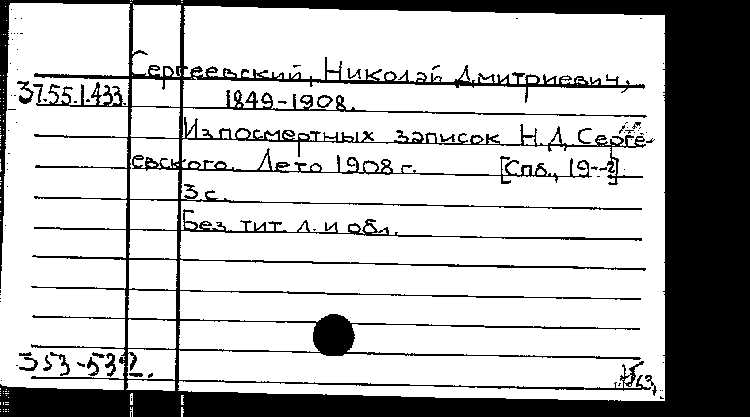 Сергеевский, Николай Дмитриевич,
37.55.1.433 1849-1908.
Из посмертных записок Н.Д. Серге-
евского. Лето 1908 г. [Спб., 19--?].
3 с.
Без тит. л. и обл.
353-532.